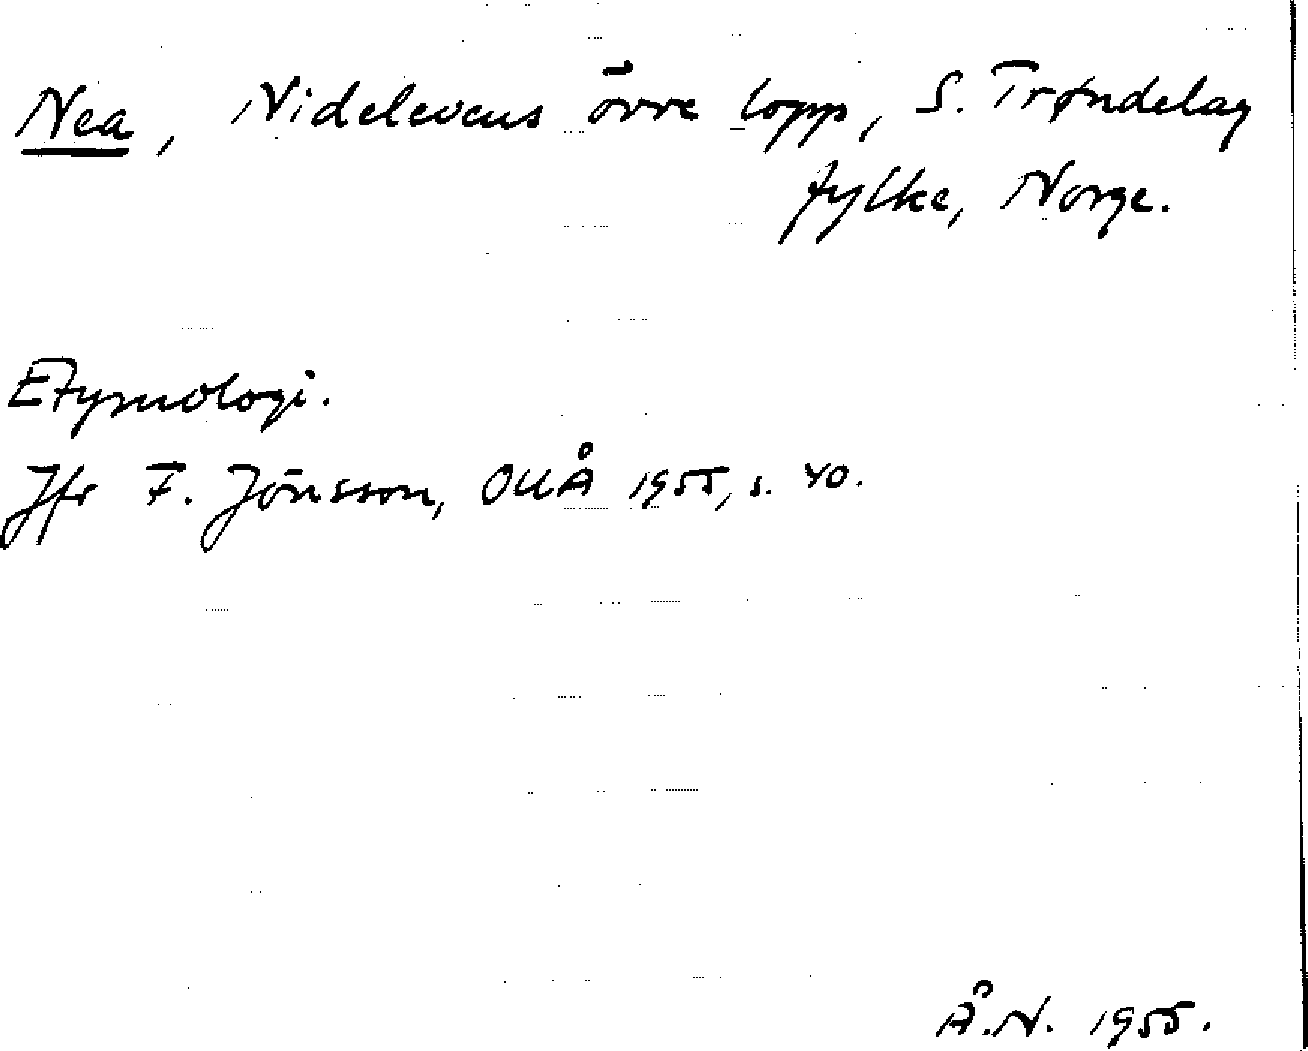 Nea, Nidelevens övre lopp, S. Trøndelag
fylke, Norge.
Etymologi.
Jfr F. Jónsson, OUÅ 1955, s. 40.
Å.N. 1955.